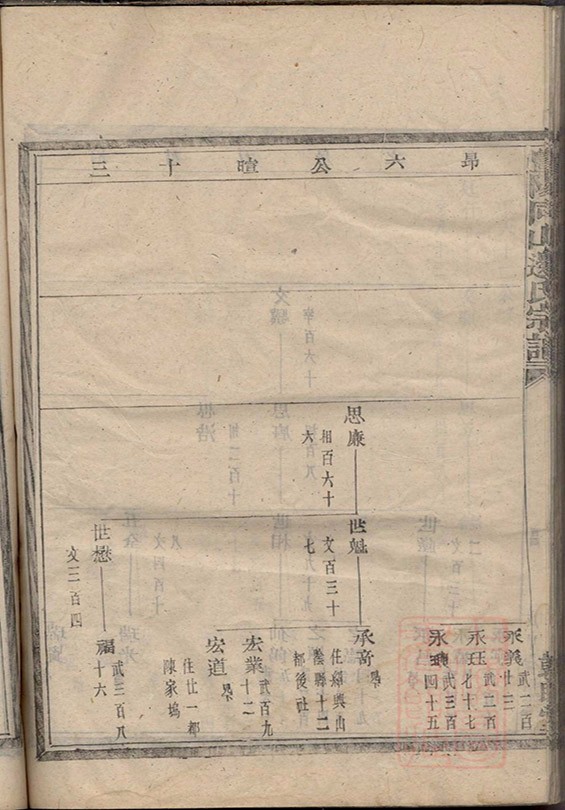 昂六公暄十三
永義 武二百廿三
永珏 武二百七十七
武三百四十五
思廉 相百六十六
世魁 文百三十七
承奇 早
住紹興山陰縣十二都後社
宏業 武百九十二
宏道 早
住廿一都陳家塢
世懋 文三百四
福 武三百八十六
山邊氏宗譜